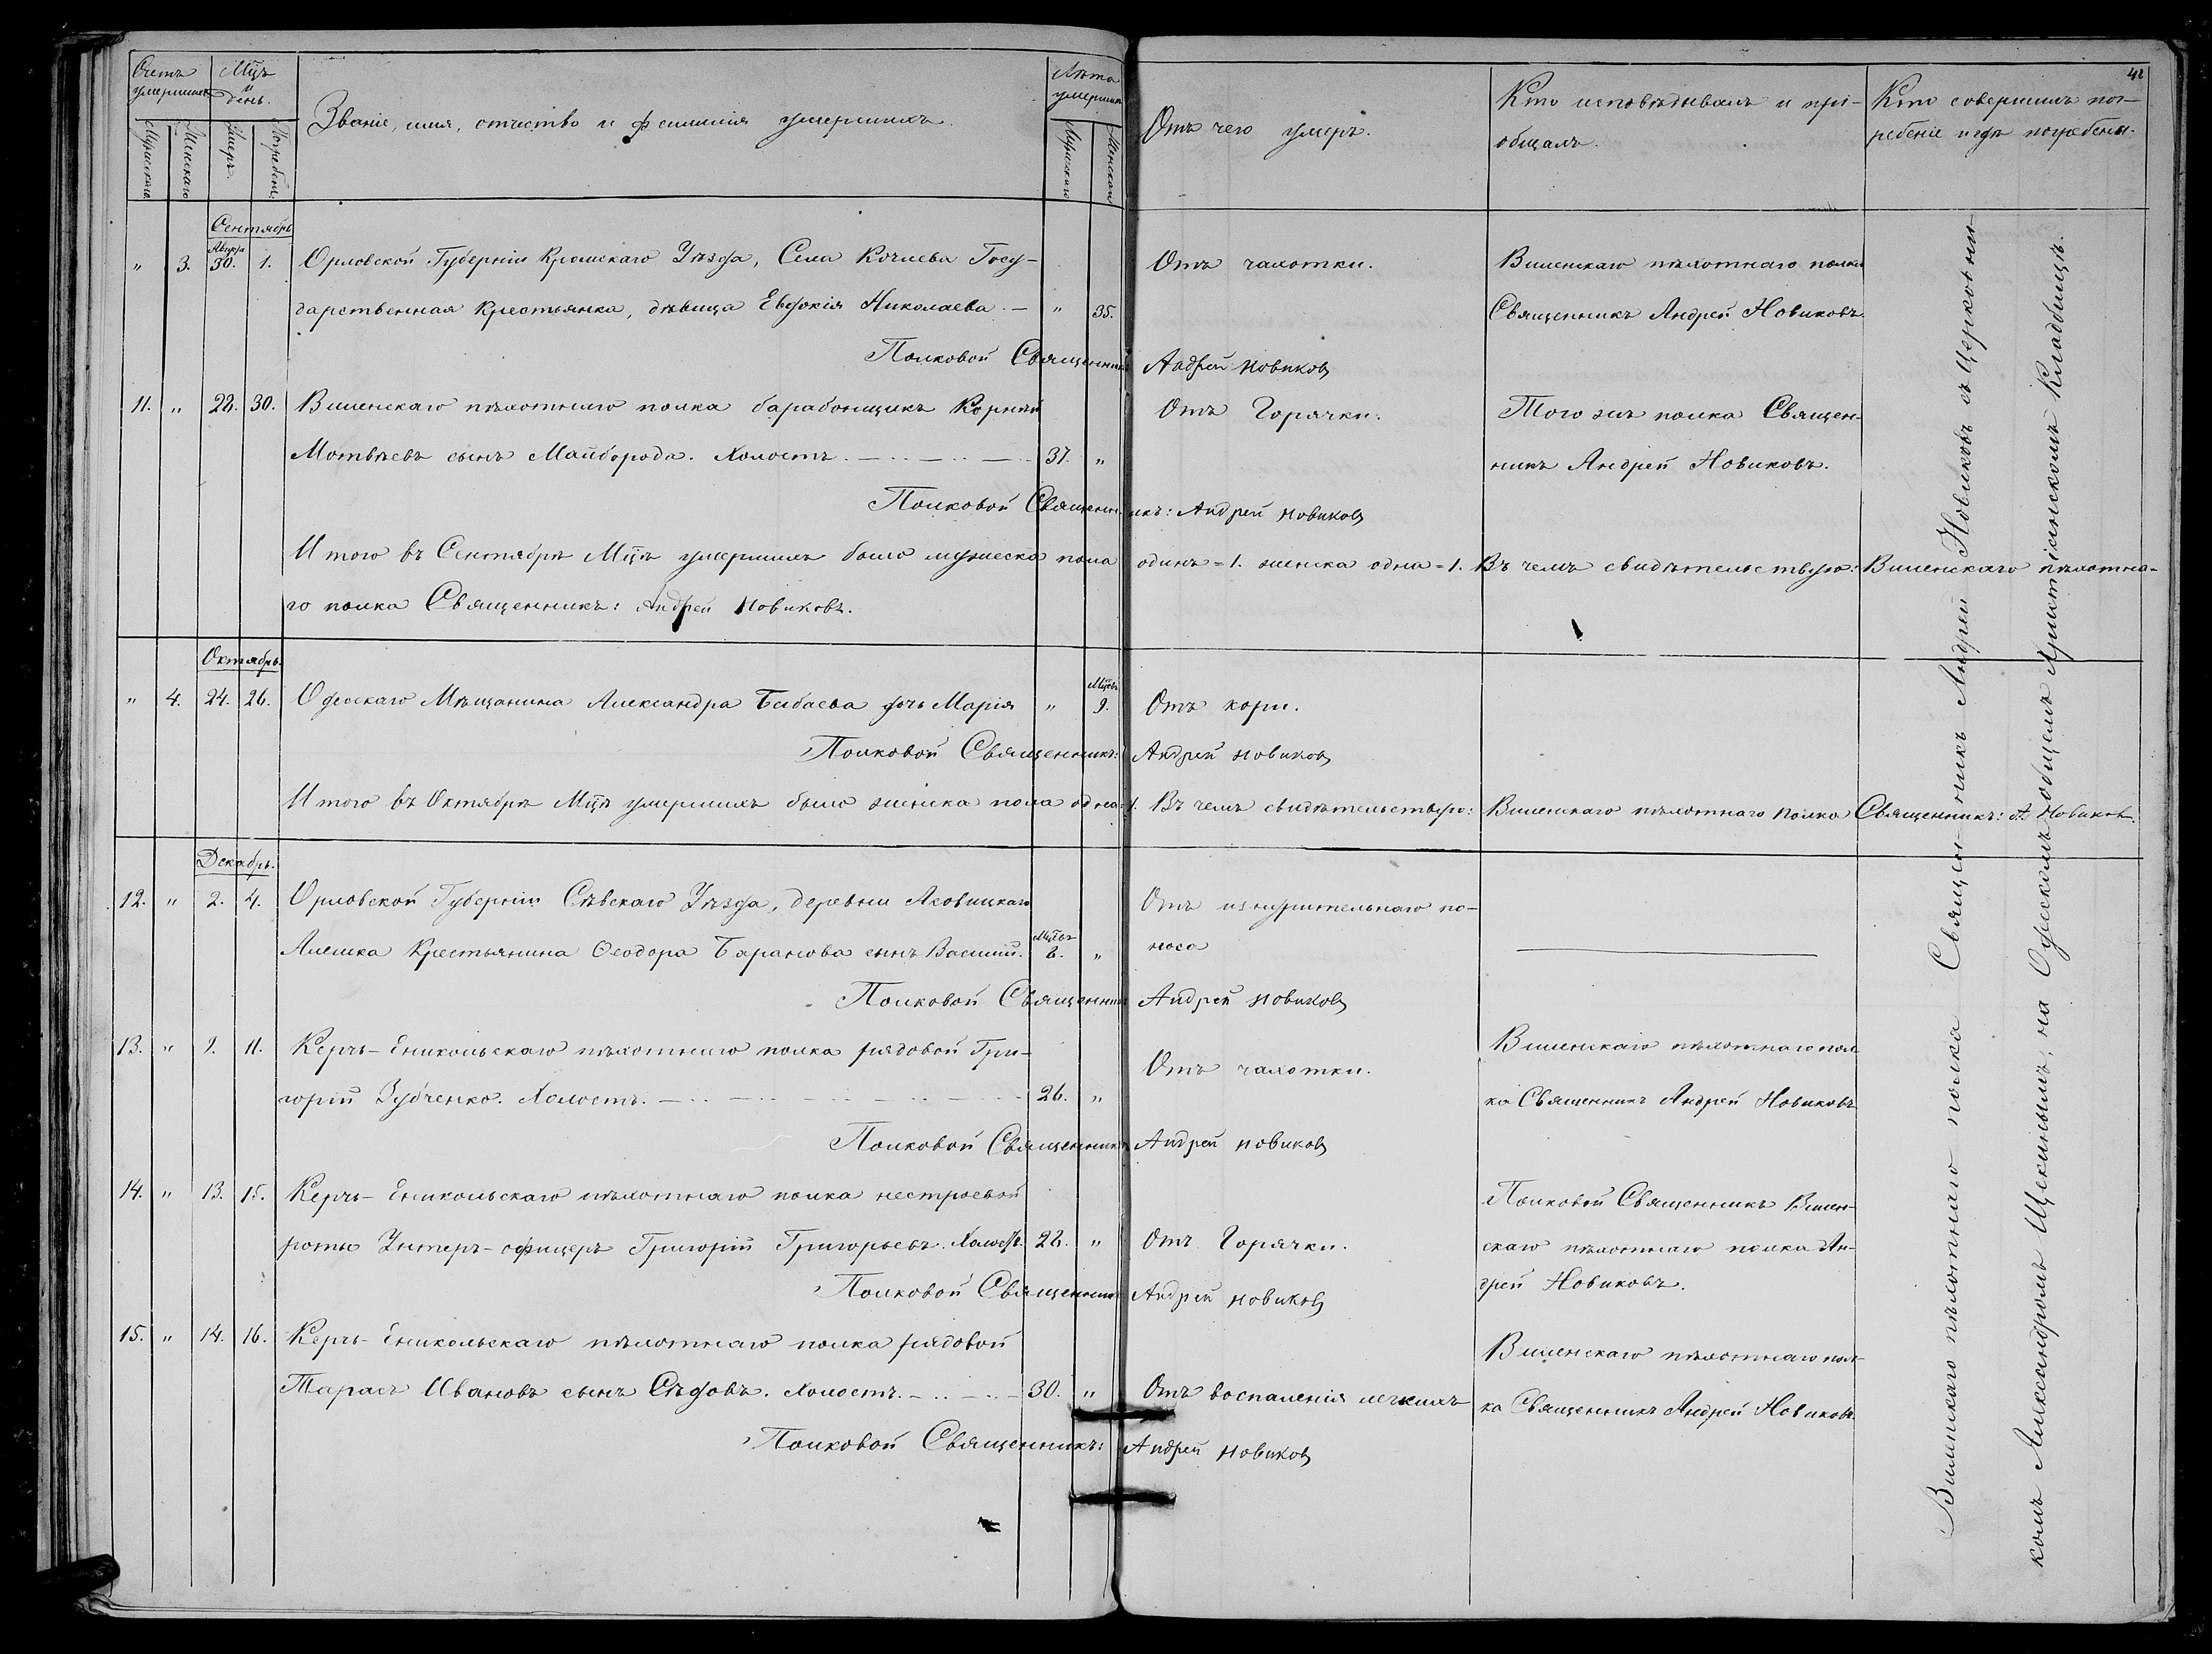 42
Счетъ умершихъ
Мц҃ъ и день.
Званіе, имя, отчество и фамилія умершихъ.
Лѣта умерших
Отъ чего умеръ.
Кто исповѣдывалъ и прі-
общалъ.
Кто совершилъ пог-
ребеніе и гдѣ погребены.
Мужескаго
Женскаго
Умеръ.
Погребенъ.
Мужскаго
Женскаго
Сентябрь
" 3. Августа 30. 1. Орловской Губерніи Кромскаго Уѣзда, Села Кочнева Госу- Отъ чахотки. Виленскаго пѣхотнаго полка
дарственная Крестьянка, дѣвица Евдокія Николаева. — " 35. Священникъ Андрей Новиковъ.
Полковой Священникъ Андрей Новиковъ
11. " 28. 30. Виленскаго пѣхотнаго полка барабонщикъ Корнѣй Отъ Горячки. Того же полка Священ-
Мотвѣевъ сынъ Майборода. Холостъ. 37. " никъ Андрей Новиковъ.
Полковой Священникъ: Андрей Новиковъ
Итого въ Сентябрѣ Мц҃ѣ умершихъ было мужеска пола одинъ = 1. женска одна = 1. Въ чемъ свидѣтельствую: Виленскаго пѣхотна-
го полка Священникъ: Андрей Новиковъ.
Октябрь.
" 4. 24. 26. Одесскаго Мѣщанина Александра Бабаева дочь Марія " Мц҃евъ 9. Отъ кори.
Полковой Священникъ: Андрей Новиковъ
Итого въ Октябрѣ Мц҃ѣ умершихъ было женска пола одна = 1. Въ чемъ свидѣтельствую: Виленскаго пѣхотнаго полка Священникъ: А. Новиковъ.
Декабрь.
12. " 2. 4. Орловской Губерніи Сѣвскаго Уѣзда, деревни Лѣовицкаго Отъ изнурительнаго по-
Алешка Крестьянина Ѳеодора Баранова сынъ Василій. Мц҃евъ 8. " носа
Полковой Священникъ Андрей Новиковъ
13. " 9. 11. Керчь-Еникольскаго пѣхотнаго полка рядовой Гри- Отъ чахотки. Виленскаго пѣхотнаго пол-
горій Зубченко. Холостъ. 26. " ка Священникъ Андрей Новиковъ
Полковой Священникъ Андрей Новиковъ
14. " 13. 15. Керчь-Еникольскаго пѣхотнаго полка нестроевой Полковой Священникъ Вилен-
роты Унтеръ-офицеръ Григорій Григорьевъ. Холостъ. 28. " Отъ Горячки. скаго пѣхотнаго полка Ан-
Полковой Священникъ Андрей Новиковъ дрей Новиковъ.
15. " 14. 16. Керчь-Еникольскаго пѣхотнаго полка рядовой Виленскаго пѣхотнаго пол-
Тарасъ Ивановъ сынъ Сѣдовъ. Холостъ. 30. " Отъ воспаленія легкихъ ка Священникъ Андрей Новиковъ.
Полковой Священникъ: Андрей Новиковъ
Виленскаго пѣхотнаго полка Священникъ Андрей Новиковъ съ Церковни-
комъ Александромъ Щекинымъ, на Одесскомъ общемъ Христіанскомъ Кладбищѣ.